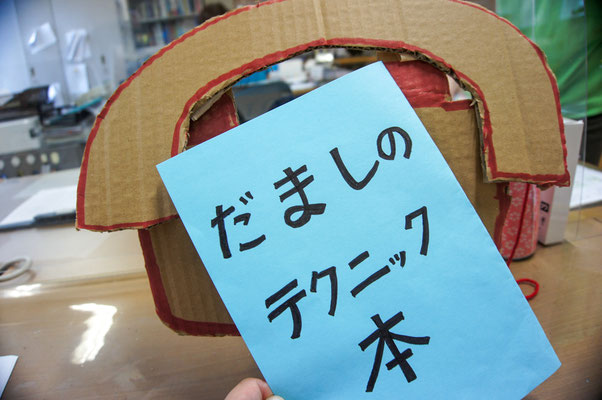 だましの
テクニック
本